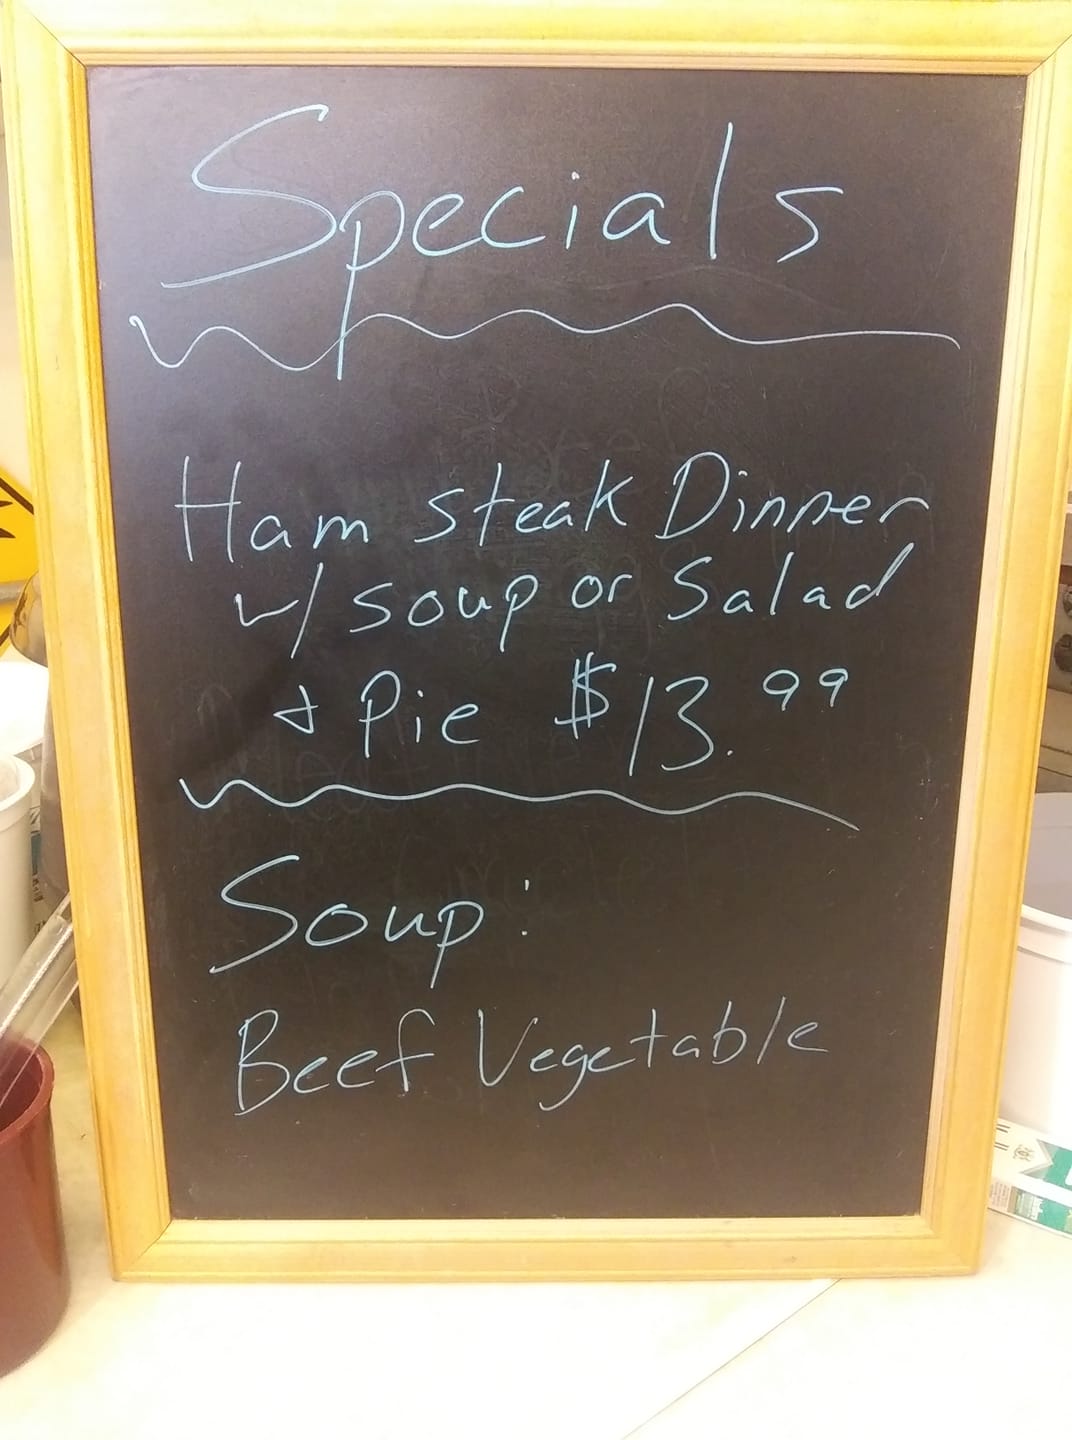 Specials
Ham steak Dinner
w/ soup or Salad
+ Pie $13.99
Soup:
Beef Vegetable